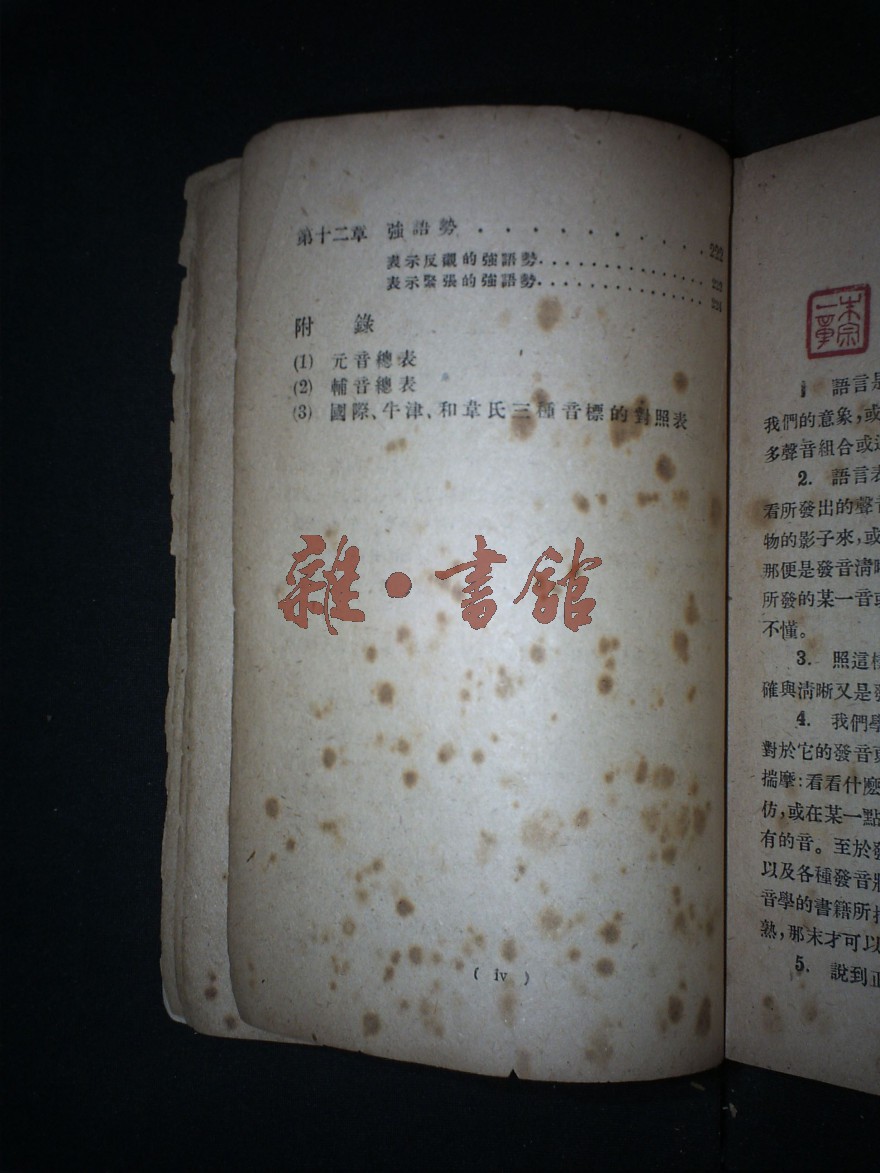 第十二章 強語勢 . . . . . . . . . . . . 222
表示反觀的強語勢. . . . . . . . . . . . . . 222
表示緊張的強語勢. . . . . . . . . . . . . . 224
附 錄
(1) 元音總表
(2) 輔音總表
(3) 國際、牛津、和韋氏三種音標的對照表
雜·書館
( iv )
1 語言是
我們的意象,或
多聲音組合或
2. 語言表
看所發出的聲音
物的影子來,或
那便是發音清晰
所發的某一音或
不懂。
3. 照這樣
確與清晰又是發
4. 我們學
對於它的發音
揣摩:看看什麽
仿,或在某一點
有的音。至於發
以及各種發音
音學的書籍所
熟,那末才可以
5. 說到正